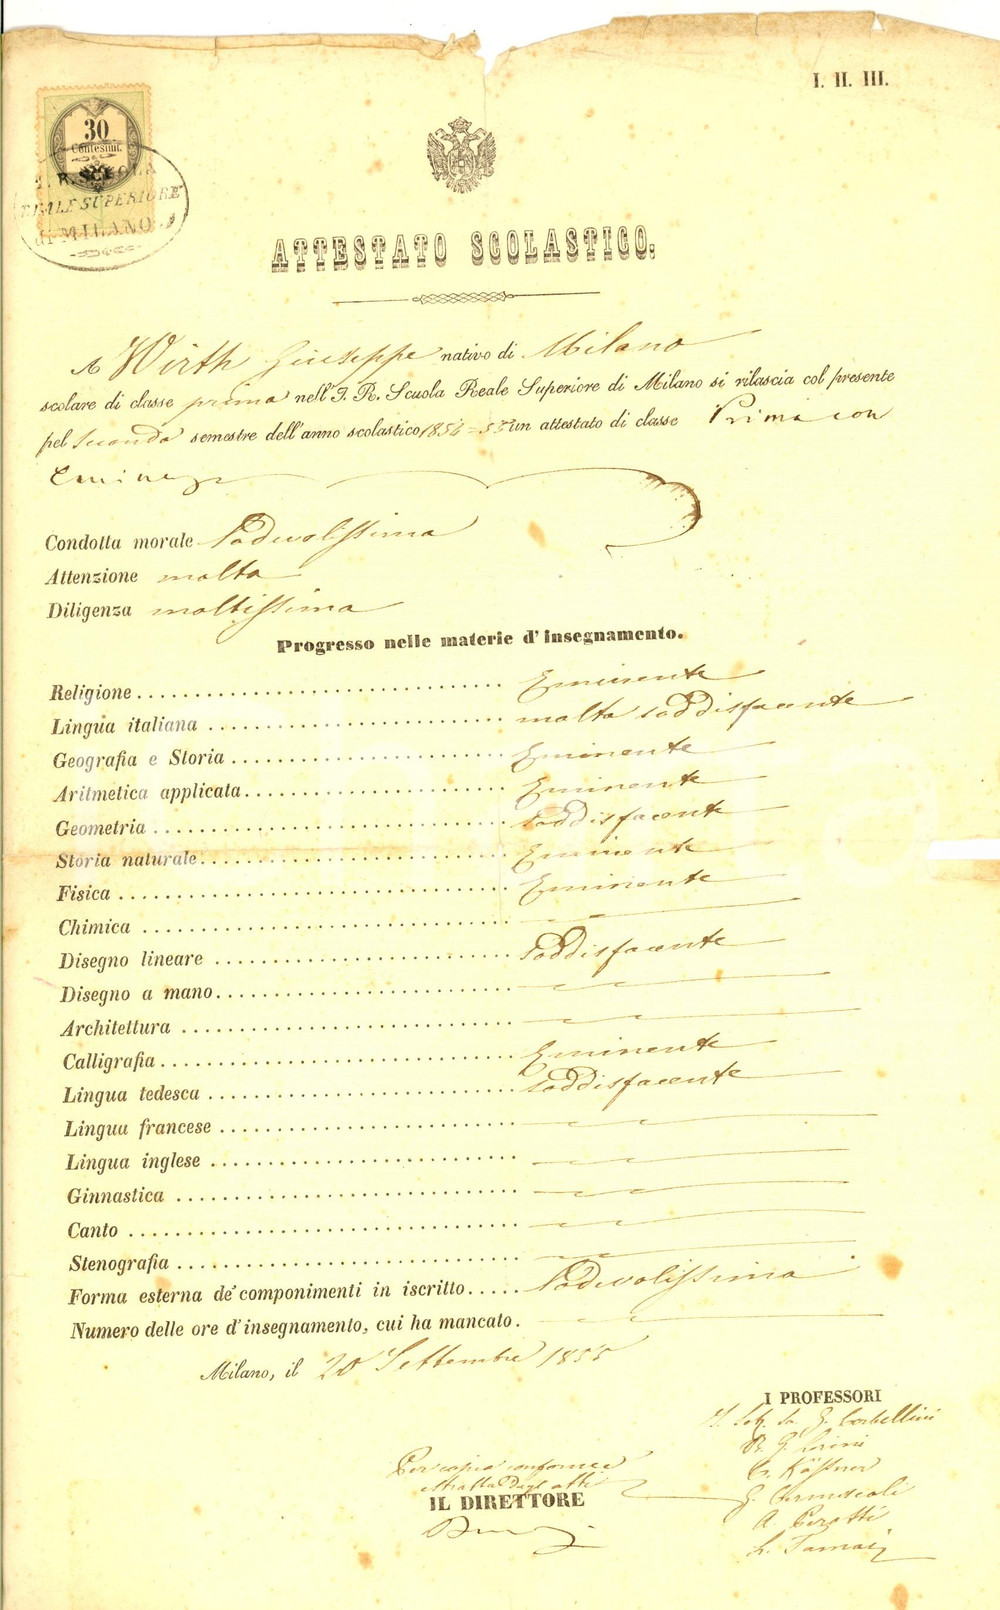 I. II. III.
30
Centesimi.
I. R. SCUOLA
REALE SUPERIORE
di MILANO
ATTESTATO SCOLASTICO.
A Wirth Giuseppe nativo di Milano
scolare di classe prima nell' I. R. Scuola Reale Superiore di Milano si rilascia col presente
pel secondo semestre dell'anno scolastico 1854=55 un attestato di classe Prima con
Eminenza
Condotta morale Lodevolissima
Attenzione molta
Diligenza moltissima
Progresso nelle materie d'insegnamento.
Religione Eminente
Lingua italiana molto soddisfacente
Geografia e Storia Eminente
Aritmetica applicata Eminente
Geometria soddisfacente
Storia naturale Eminente
Fisica Eminente
Chimica
Disegno lineare soddisfacente
Disegno a mano
Architettura
Calligrafia Eminente
Lingua tedesca soddisfacente
Lingua francese
Lingua inglese
Ginnastica
Canto
Stenografia
Forma esterna de' componimenti in iscritto Lodevolissima
Numero delle ore d'insegnamento, cui ha mancato.
Milano, il 20 Settembre 1855
I PROFESSORI
G. Corbellini
Per copia conforme
estratta dagli atti
IL DIRETTORE
G. Kästner
A. Perotti